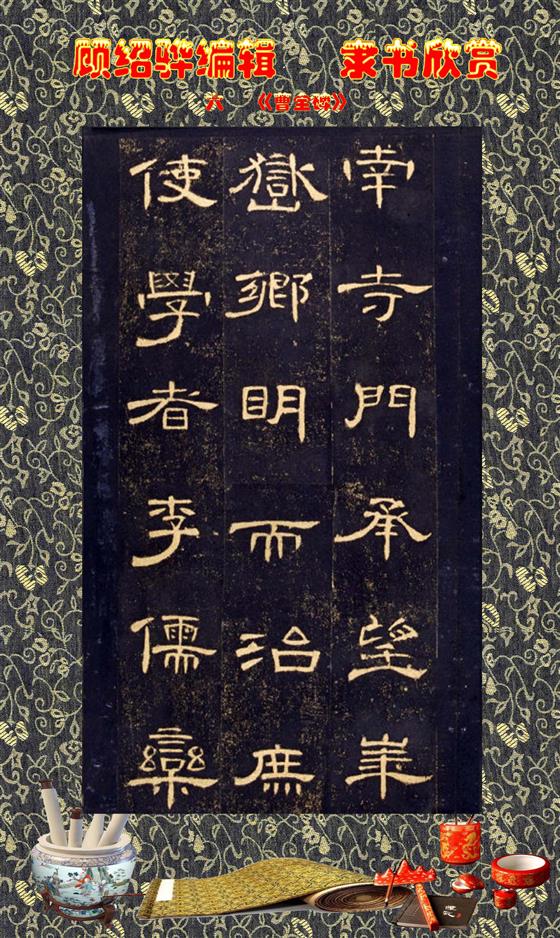 顾绍骅编辑 隶书欣赏
六 《曹全碑》
南寺門承望華
嶽鄉明而治庶
使學者李儒欒